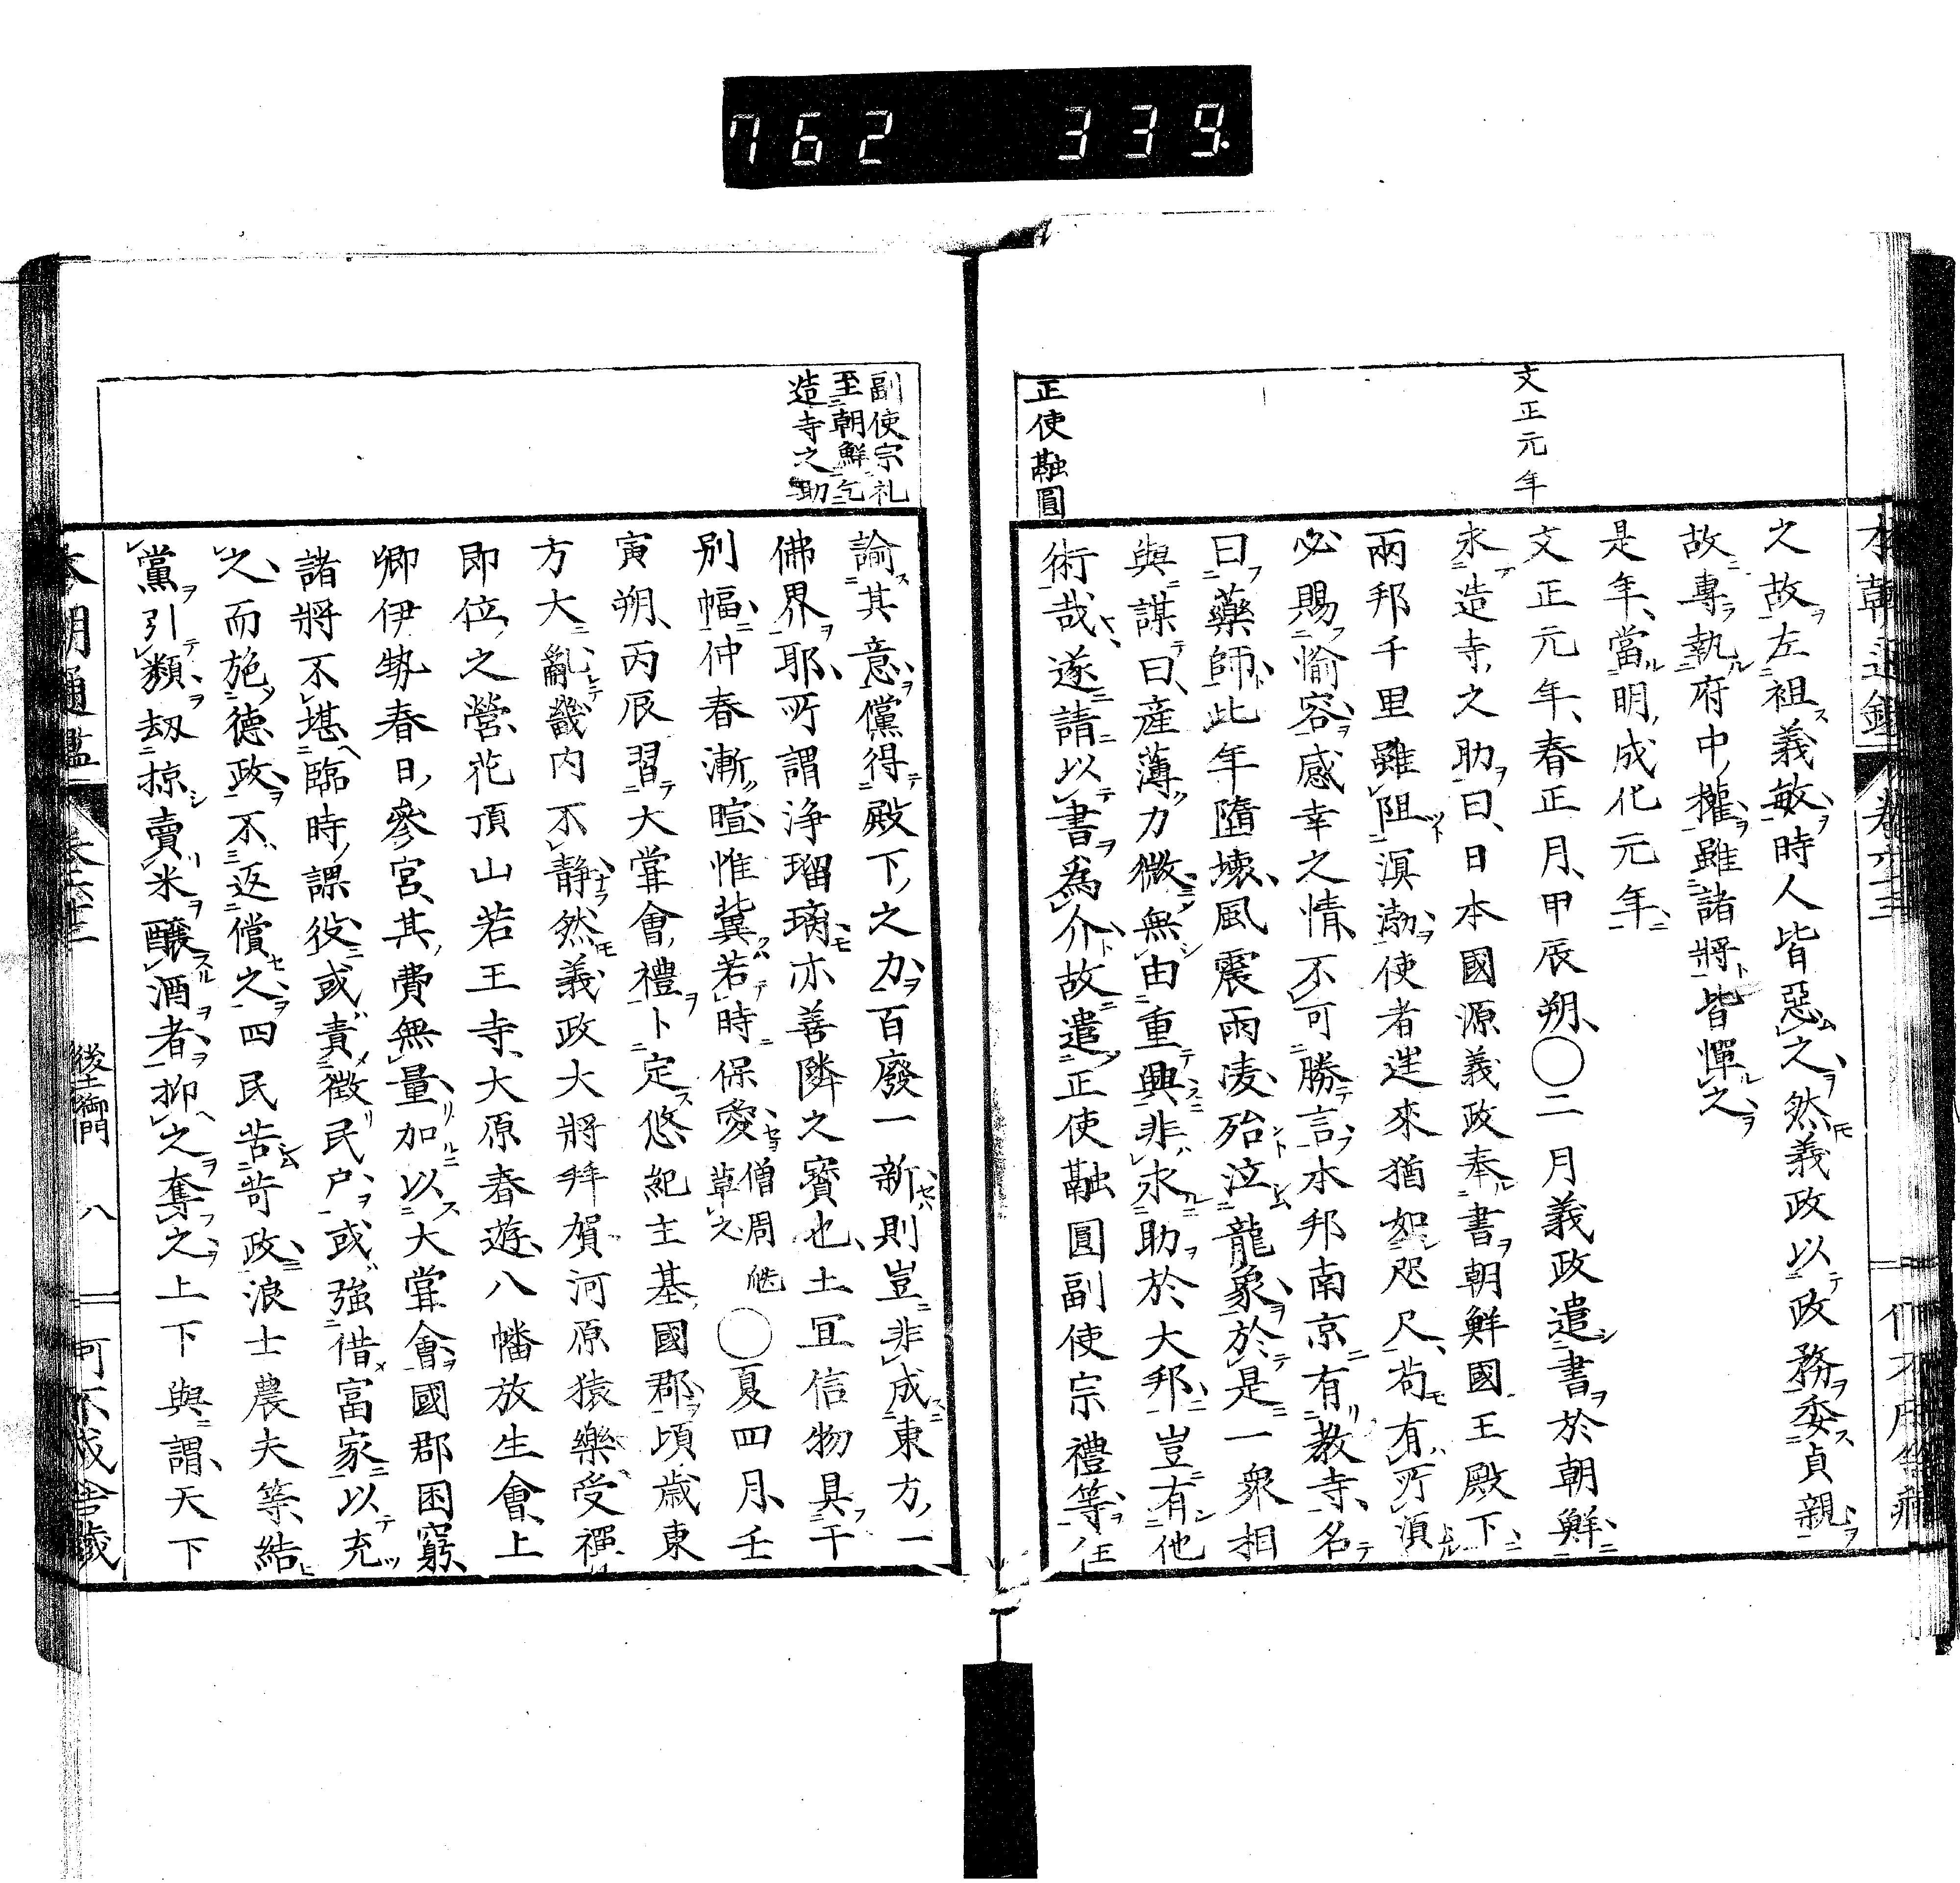 762 339.
本朝通鑑 卷六十三
文正元年
正使融圓
之故左袒義敏時人皆惡之然義政以政務委貞親
故專執府中權雖諸將皆憚之
是年當明成化元年
文正元年春正月甲辰朔○二月義政遣書於朝鮮
求造寺之助曰日本國源義政奉書朝鮮國王殿下
兩邦千里雖阻溟渤使者進來猶如咫尺苟有所湏
必賜愉容感幸之情不可勝言本邦南京有教寺名
曰藥師此年隳壞風震雨凌殆泣龍象於是一衆相
與謀曰産薄力微無由重興非求助於大邦豈有他
術哉遂請以書爲介故遣正使融圓副使宗禮等
副使宗礼
至朝鮮乞
造寺之助
諭其意儻得殿下之力百廢一新則豈非成東方一
佛界耶所謂浄瑠璃亦善隣之寳也土宜信物具于
別幅仲春漸暄惟冀若時保愛僧周㒐草之○夏四月壬
寅朔丙辰習大甞會禮卜定悠紀主基國郡頃歳東
方大亂畿内不静然義政大將拜賀河原猿樂受禪
即位之營花頂山若王寺大原春遊八幡放生會上
卿伊勢春日參宮其費無量加以大甞會國郡困窮
諸將不堪臨時課役或責徴民户或強借冨家以充
之而施德政不返償之四民苦苛政浪士農夫等結
黨引類刼掠賣米釀酒者抑之奪之上下與謂天下
本朝通鑑 卷六十三 後土御門 八